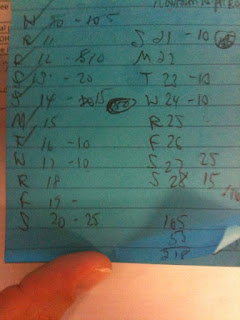 N 10 - 10
R 11
R 12 - 10
S 13 - 20
S 14 - 15
M 15
T 16 - 10
W 17 - 10
R 18
F 19 -
S 20 - 25
S 21 - 10
M 22
T 23 - 10
W 24 - 10
R 25
F 26
S 27 25
S 28 15
165
53
218